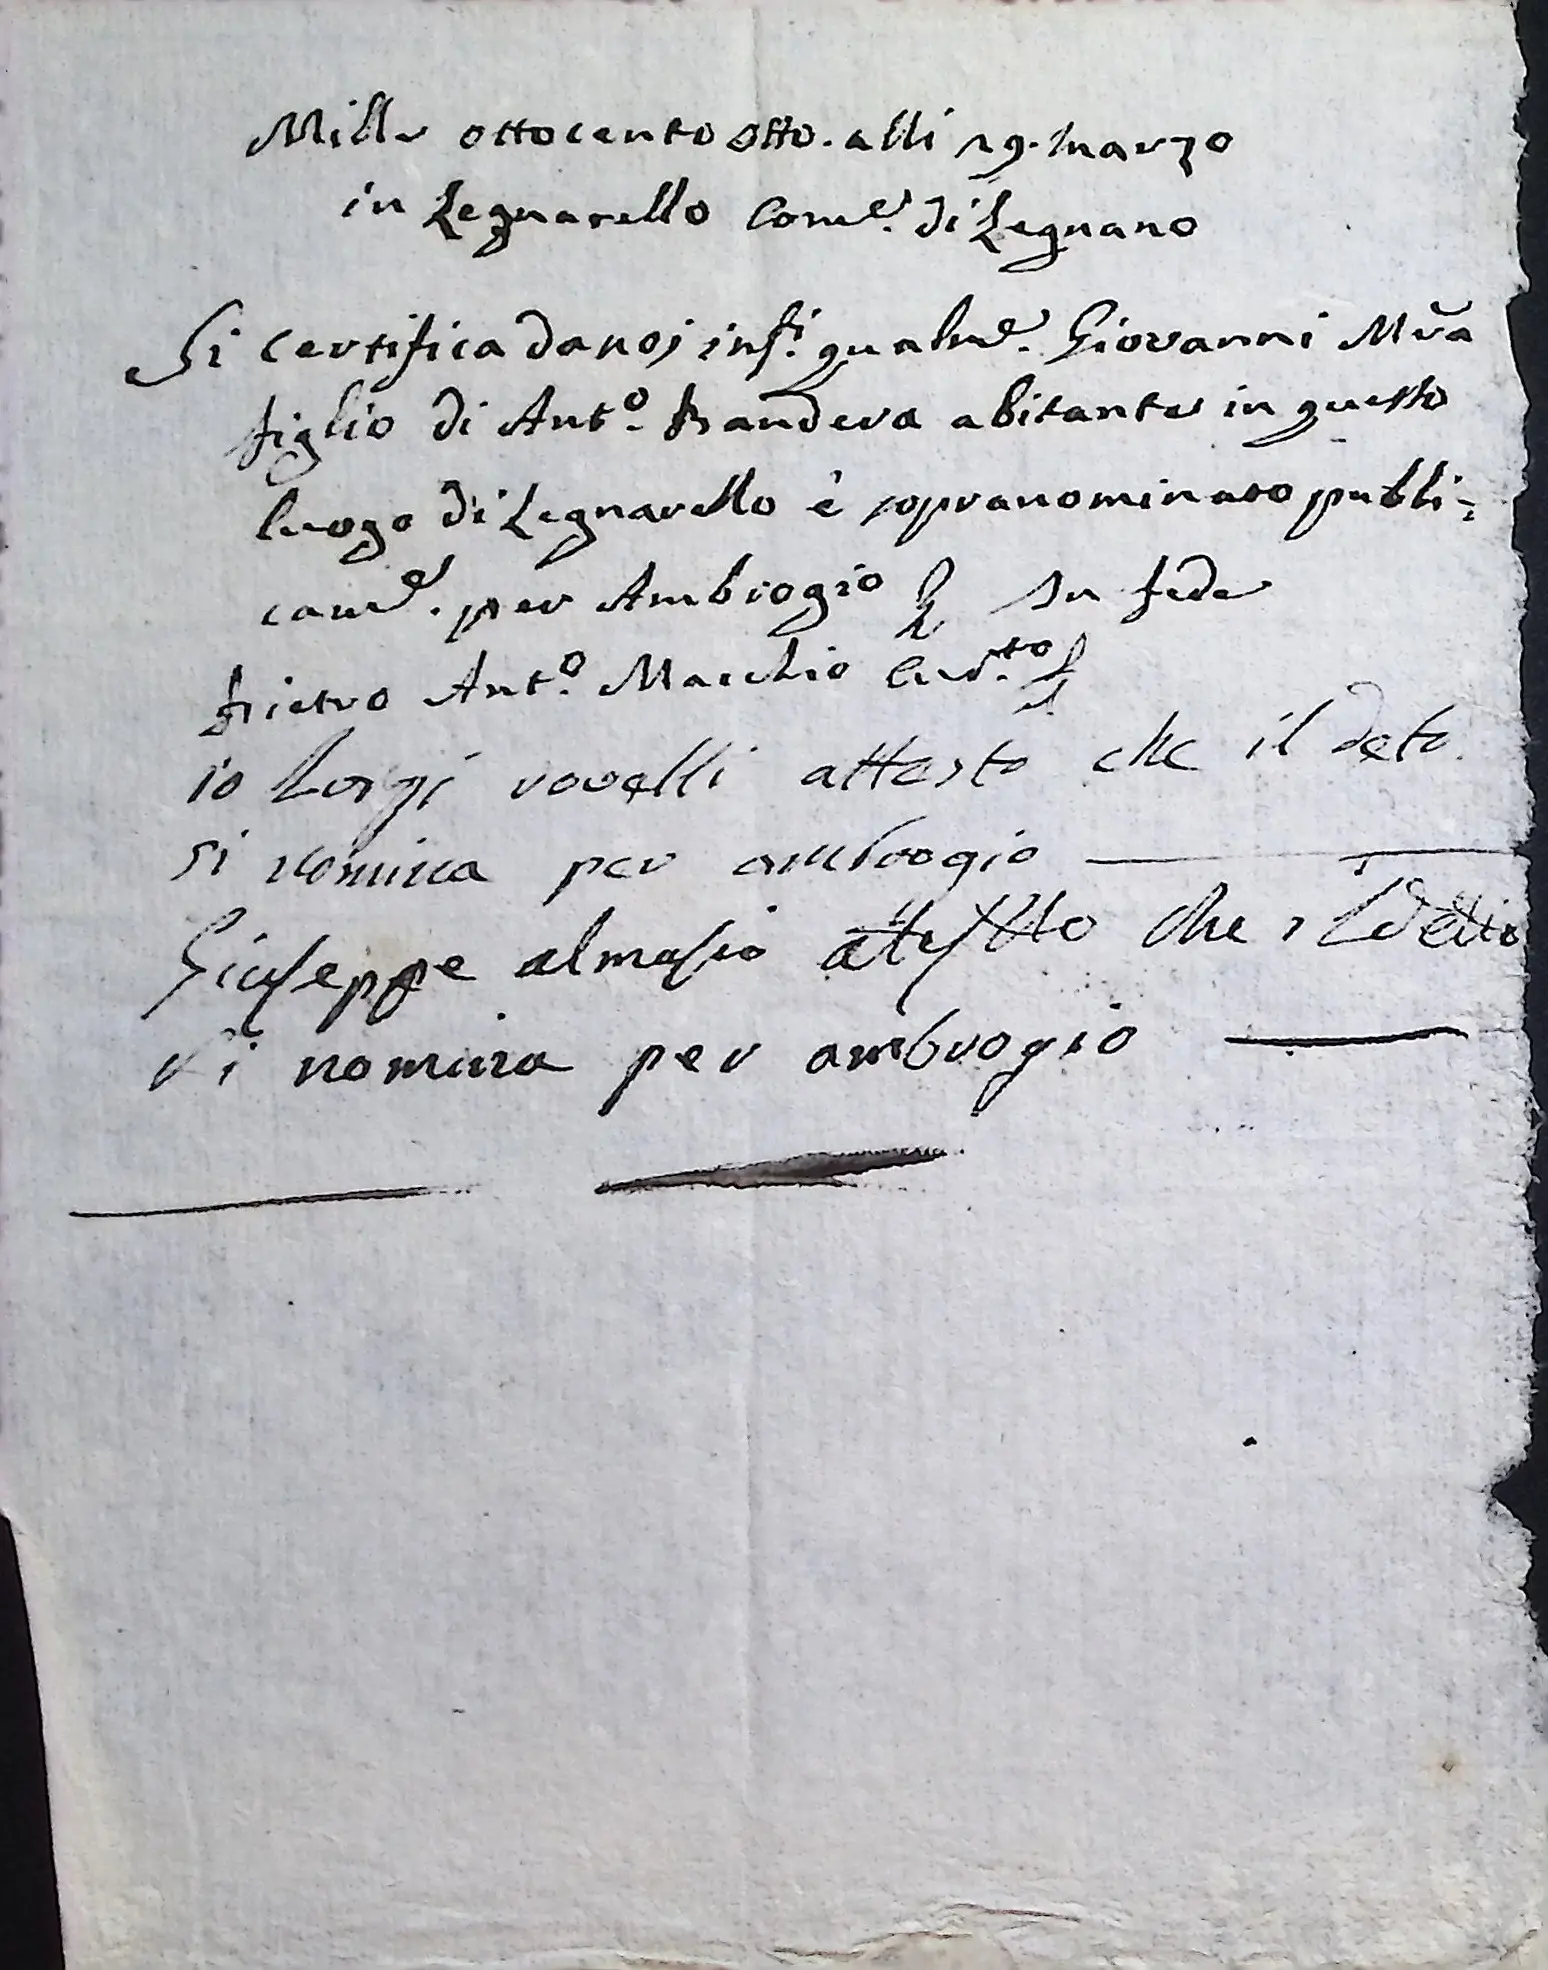 Mille ottocento otto. alli 29. Marzo
in Legnarello Com.e di Legnano
Si certifica da noj inf.ti qualm.e Giovanni M.a
figlio di Ant.o Bandera abitante in questo
luogo di Legnarello è sopranominato publi-
cam.e per Ambrogio In fede
Pietro Ant.o Macchio
io Luigi rovelli attesto che il deto
si nomina per ambrogio
Giuseppe almasio atesto che il detto
si nomina per ambrogio